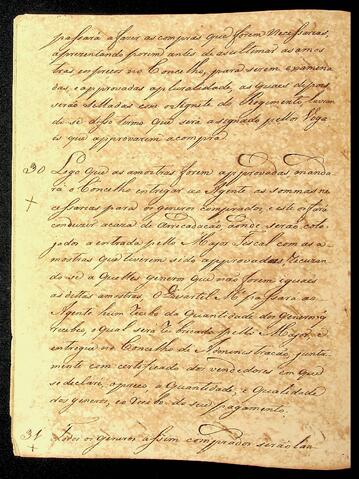 passará a fazer as compras que forem necessarias,
aprezentando porem antes de as ultimar as amos
tras e os preços no Concelho, para serem examina
das, e approvadas a pluralidade, as quaes depois
serão Selladas com o Signete do Regimento, lavran
do-se disso termo que será assignado pellos Voga
is que approvarem a compra
30 Logo que as amostras forem approvadas manda
rá o Concelho entregar ao Agente as sommas ne
cessarias para os generos comprados, e este os fará
conduzir a caza de arrecadação aonde serão coto
jados a entrada pello Major Fiscal com as a
mostras que tiverem sido approvadas, recuzan
do-se a quelles generos que não forem eguaes
as dittas amostras, o Quartel Me passara ao
Agente hum recibo da Quantidade dos generos q
recebeo, o qual será rubricado pello Major, e
entregue no Concelho de Administração, junta
mente com certificado dos vendedores em que
se declare, o preço, a Quantidade, e Qualidade
dos generos, e o recibo do seu pagamento.
31 Todos os generos assim comprados serão lan